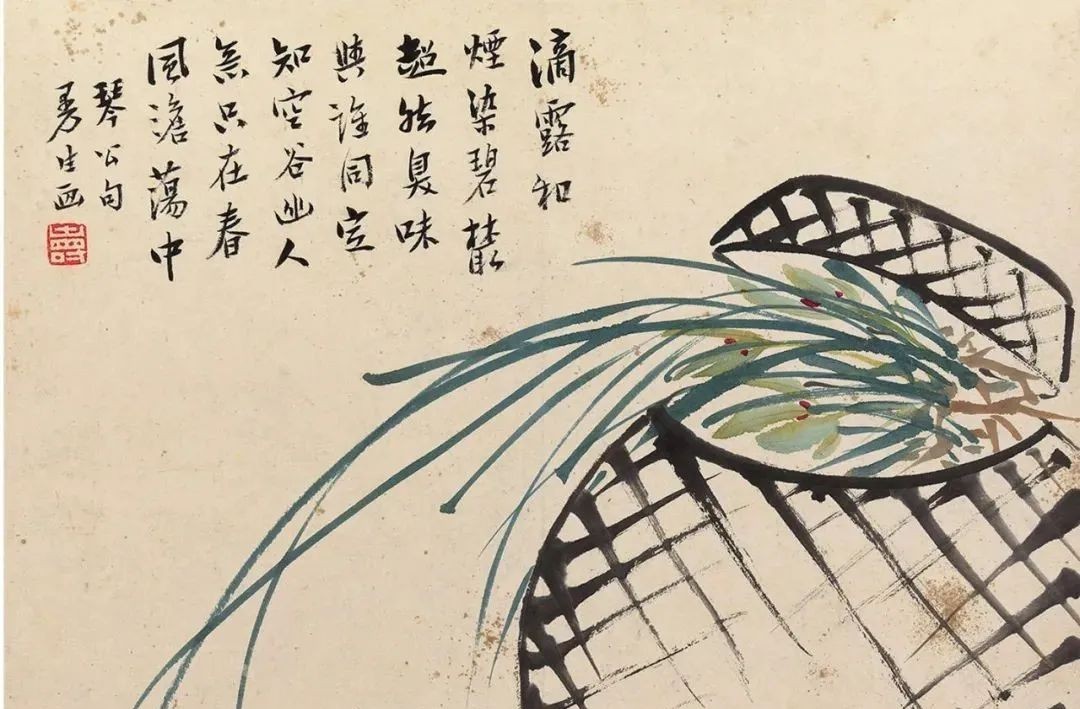 滴露和
煙染碧叢
超然臭味
與誰同定
知空谷幽人
意只在春
風澹蕩中
琴公句
曼生画